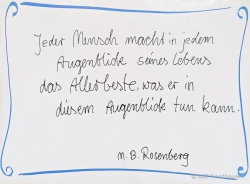 Jeder Mensch macht in jedem
Augenblick seines Lebens
das Allerbeste, was er in
diesem Augenblick tun kann.
M. B. Rosenberg